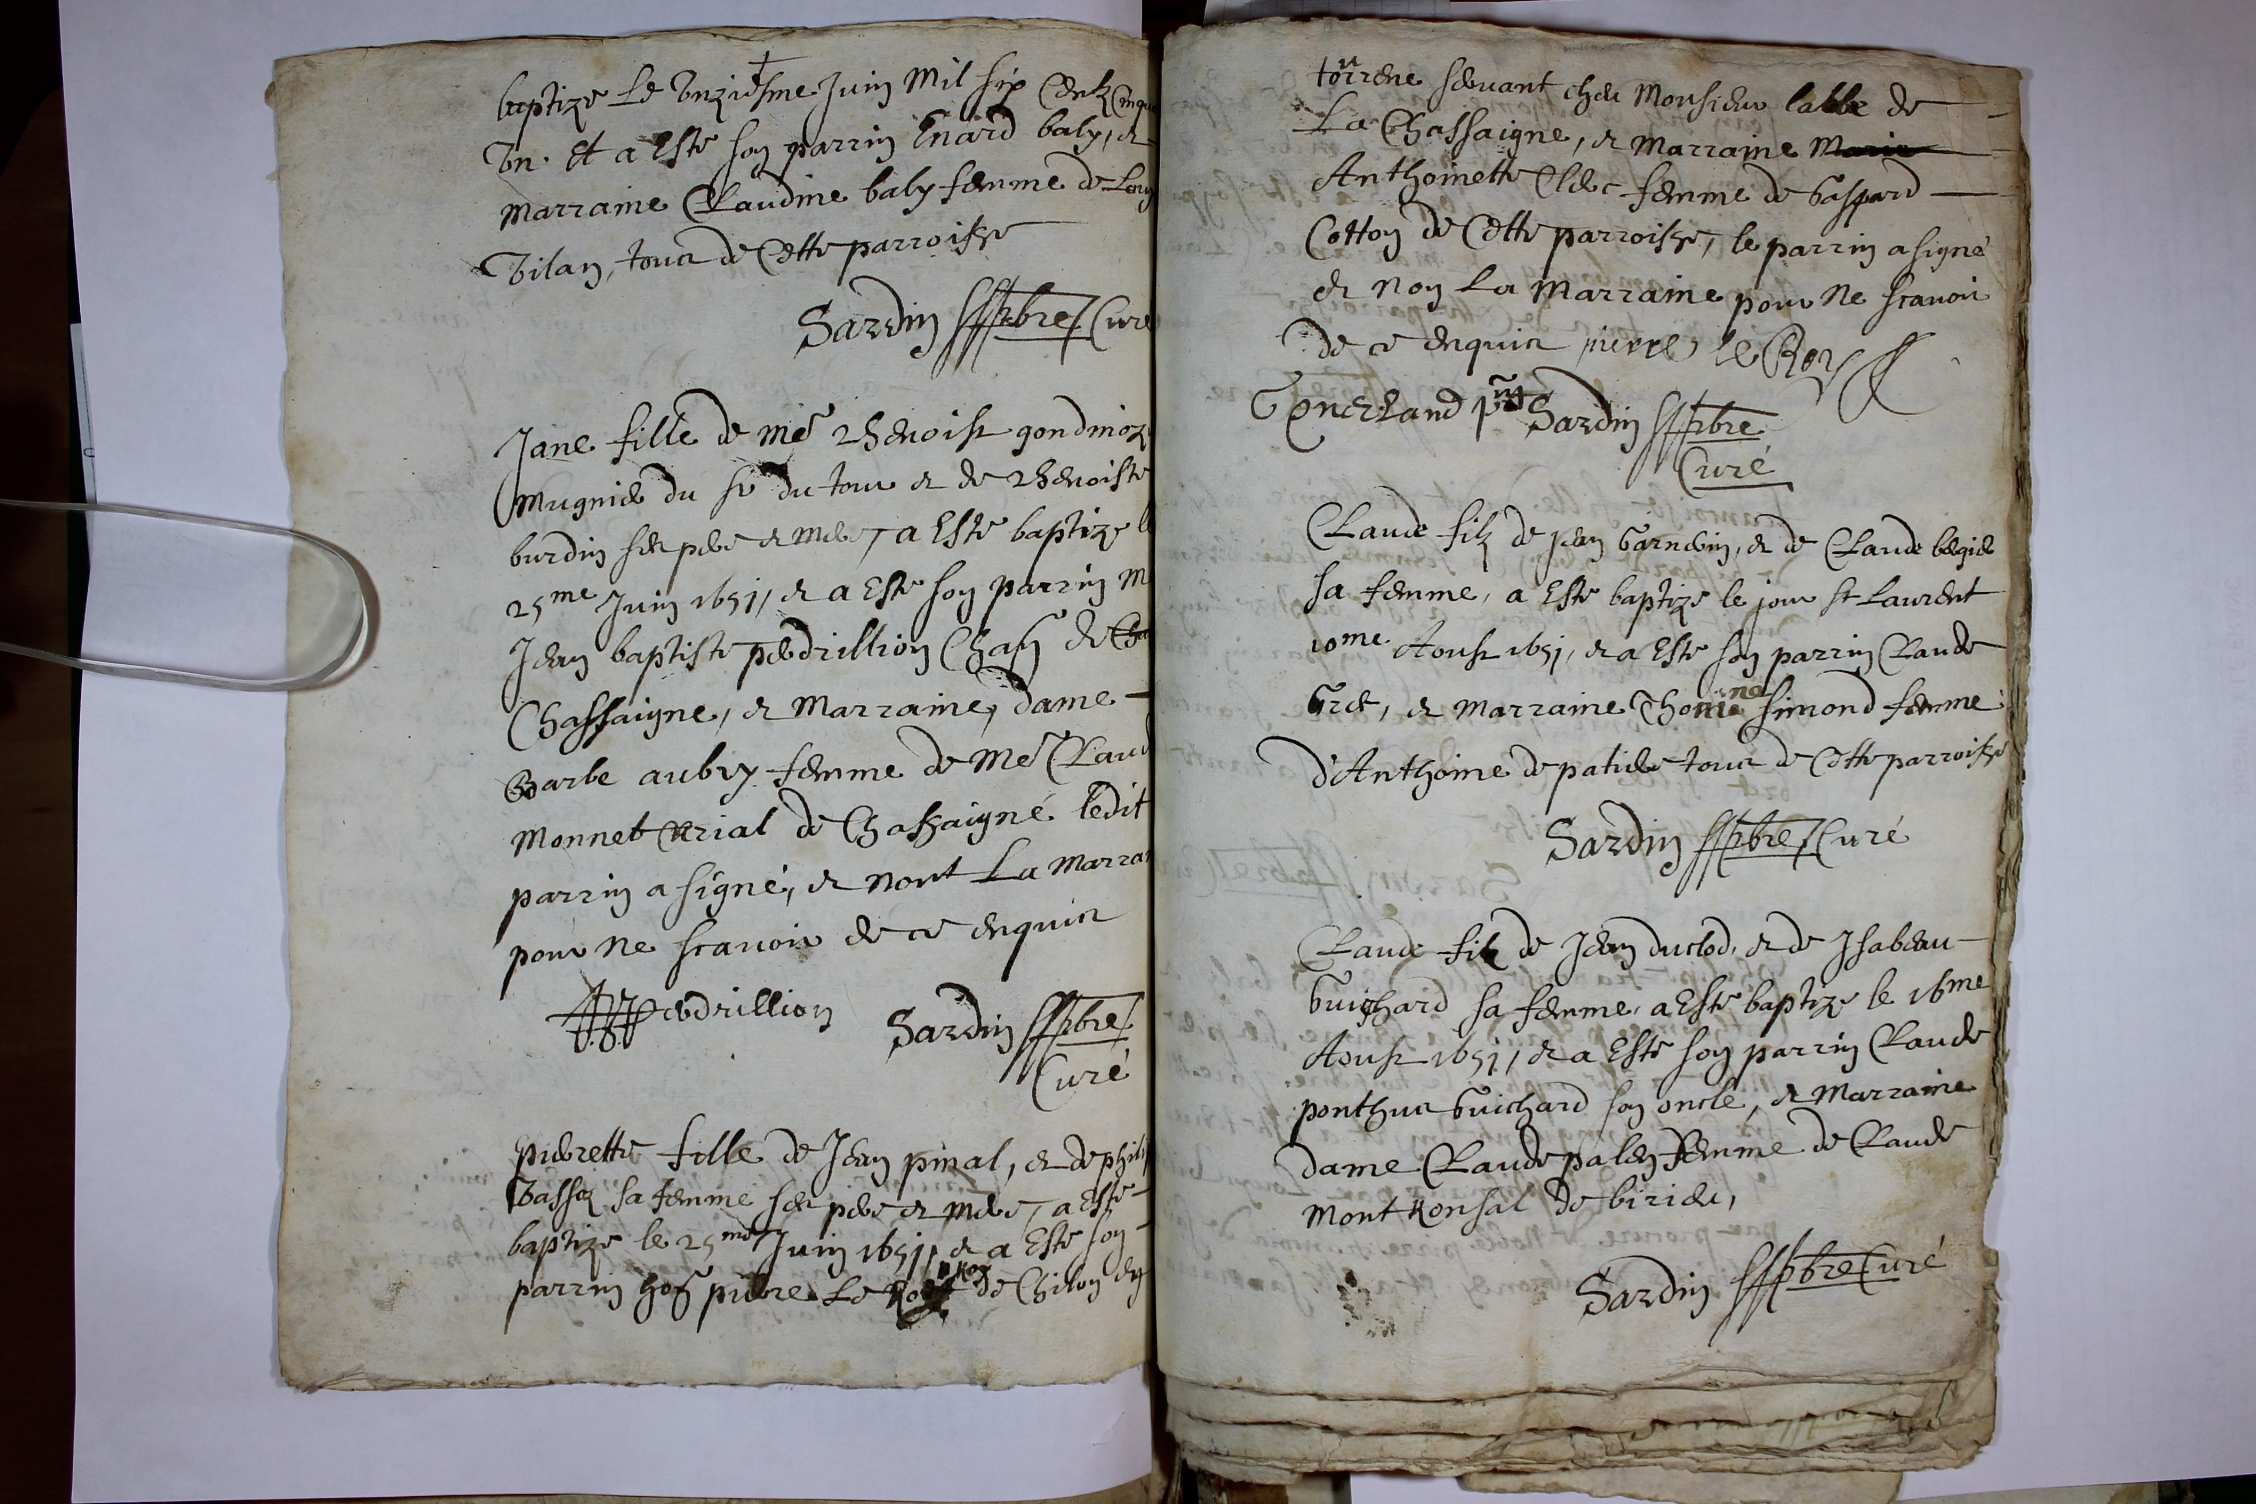 baptize le Unziesme Juin Mil six Centz Cinqu
Un. Et a Este son parrin Enard baly, et
marraine Claudine baly femme de Louy
Vilan, tous de Cette parroisse
Sardin pbre Curé
Jane fille de me benoist gondinoz
Mugnier du sr du tour et de benoiste
burdin ses pere et mere, a Este baptize le
25me Juin 1651, et a Este son parrin Me
Jean baptiste perdrillion Chasn de
Chassaigne, et marraine, dame
Barbe aubry femme de Me Claud
Monnet de Chassaigne ledit
parrin a signé, et nont La marrai
pour ne scavoir de ce enquis
perdrillion Sardin pbre
Curé
pierrette fille de Jean pinal, et de phili
Vassez sa femme ses pere et mere, a Este
baptize le 25me Juin 1651, et a Este son
parrin hon pierre Le Roy de Chilon en
torrene servant ches Monsieur labbe de
La Chassaigne, et marraine
Anthoinette Clerc femme de Gaspard
Cotton de Cette parroisse, le parrin a signé
et non La marraine pour ne scavoir
de ce enquis pierre le Roy
Sardin pbre
Curé
Claude filz de Jean Garnerin, et de Claude begie
sa femme, a Este baptize le jour st Laurent
10me Aoust 1651, et a Este son parrin Claude
Gret, et marraine Thomine simond femme
d'Anthoine de patier tous de Cette parroisse
Sardin pbre Curé
Claude filz de Jean duclod, et de Isabeau
Guichard sa femme, a Este baptize le 16me
Aoust 1651, et a Este son parrin Claude
ponthus Guichard son oncle, et Marraine
dame Claude palen femme de Claude
Mont de birieu,
Sardin pbre Curé